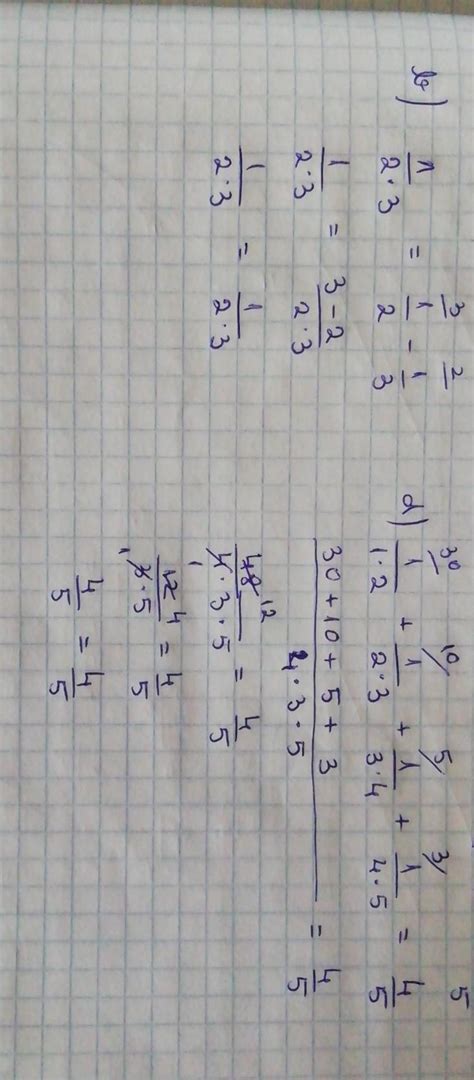 b) 1/2·3 = 3/ 1/2 - 2/ 1/3
1/2·3 = 3-2/2·3
1/2·3 = 1/2·3
5
d) 30/ 1/1·2 + 10/ 1/2·3 + 5/ 1/3·4 + 3/ 1/4·5 = 4/5
30+10+5+3/4·3·5 = 4/5
48 12/4·3·5 1 = 4/5
12 4/3·5 1 = 4/5
4/5 = 4/5